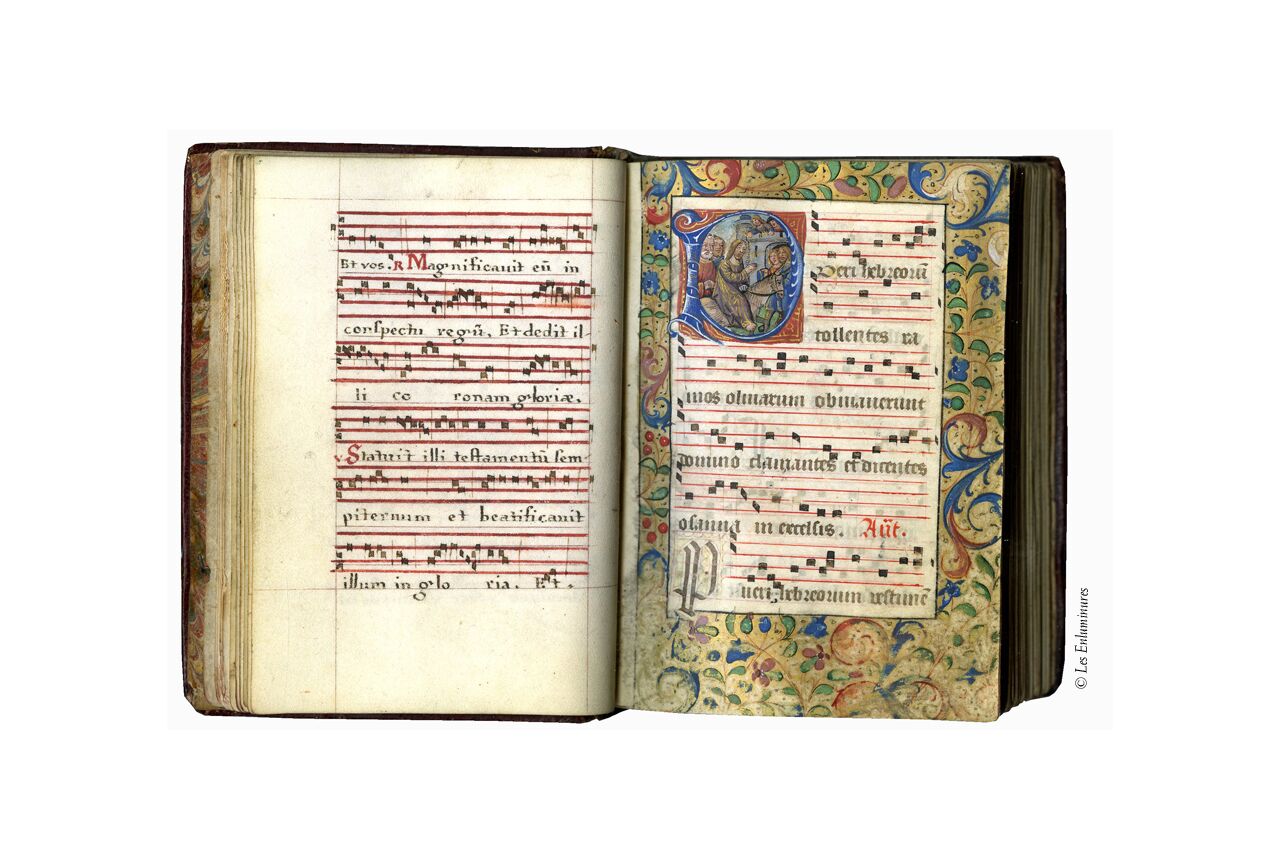 Et vos. R Magnificauit eū in
conspectu regū. Et dedit il-
li co ronam gloriæ.
v Statuit illi testamentū sem-
piternum et beatificauit
illum in glo ria. Et.
Pueri hebreorū
tollentes ra
mos oliuarum obuiauerunt
domino clamantes et dicentes
osanna in excelsis. Añt.
Pueri hebreorum vestimē
© Les Enluminures